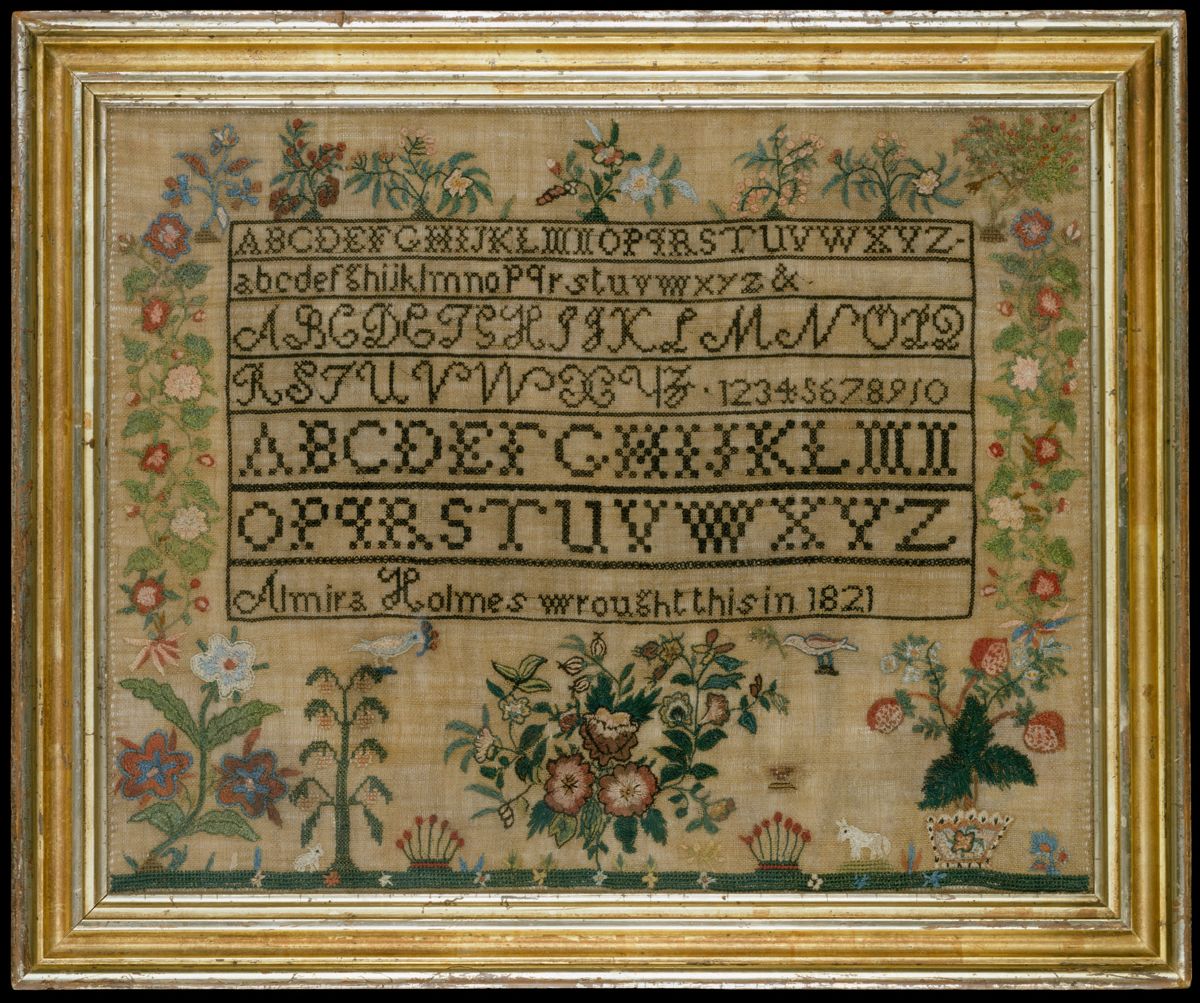 ABCDEFGHIJKLMNOPQRSTUVWXYZ
abcdefghijklmnopqrstuvwxyz &
ABCDEFGHIJKLMNOPQ
RSTUVWXYZ. 12345678910
ABCDEFGHIJKLMN
OPQRSTUVWXYZ
Almira Holmes wrought this in 1821